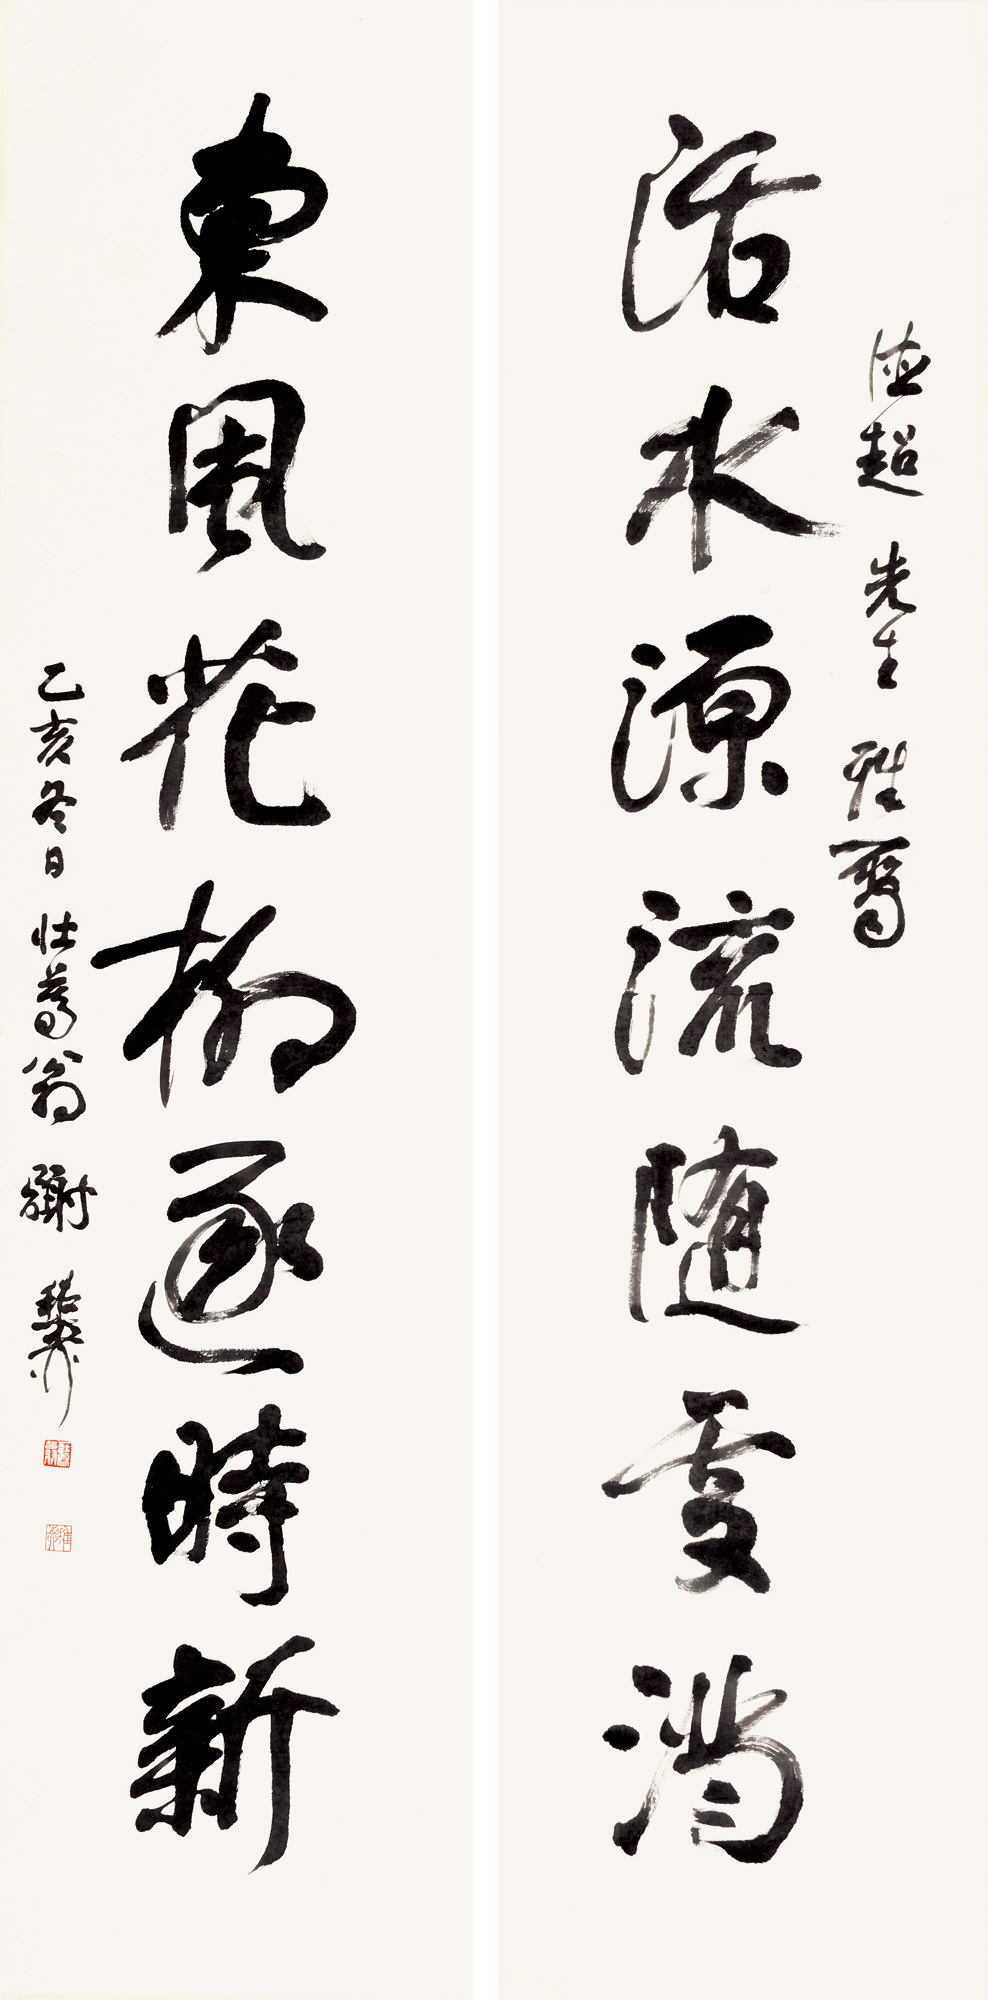 德超先生雅屬
活水源流隨處滿
東風花柳逐時新
乙亥冬日壯暮翁謝稚柳